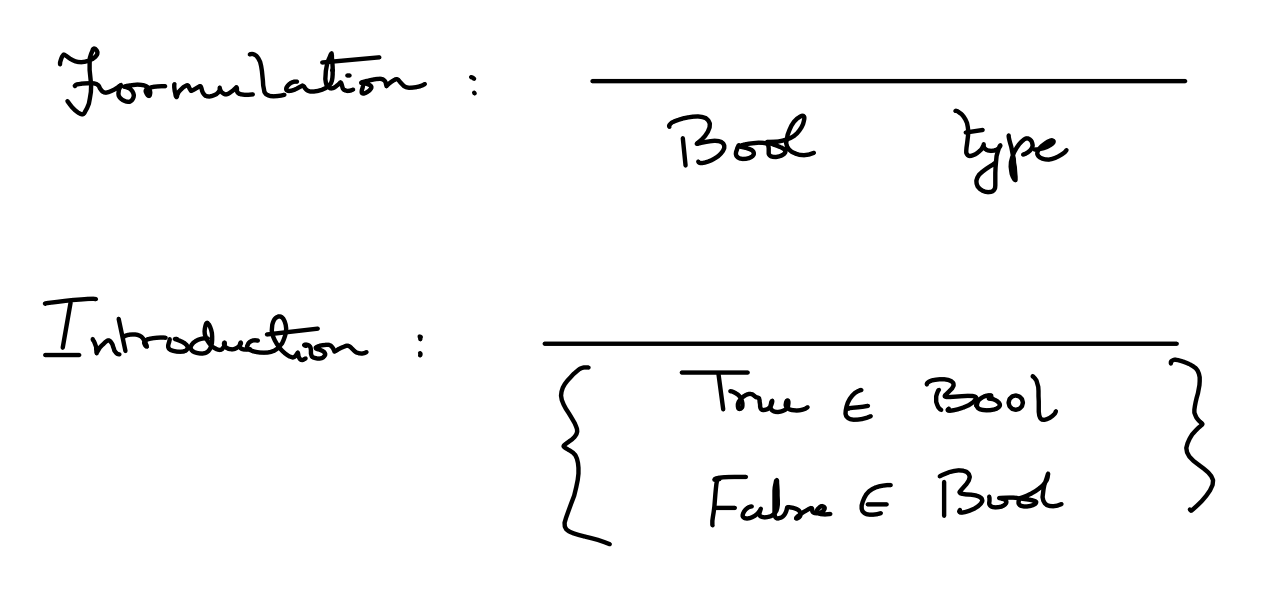 Formulation :
Bool type
Introduction :
{ True ∈ Bool
False ∈ Bool }